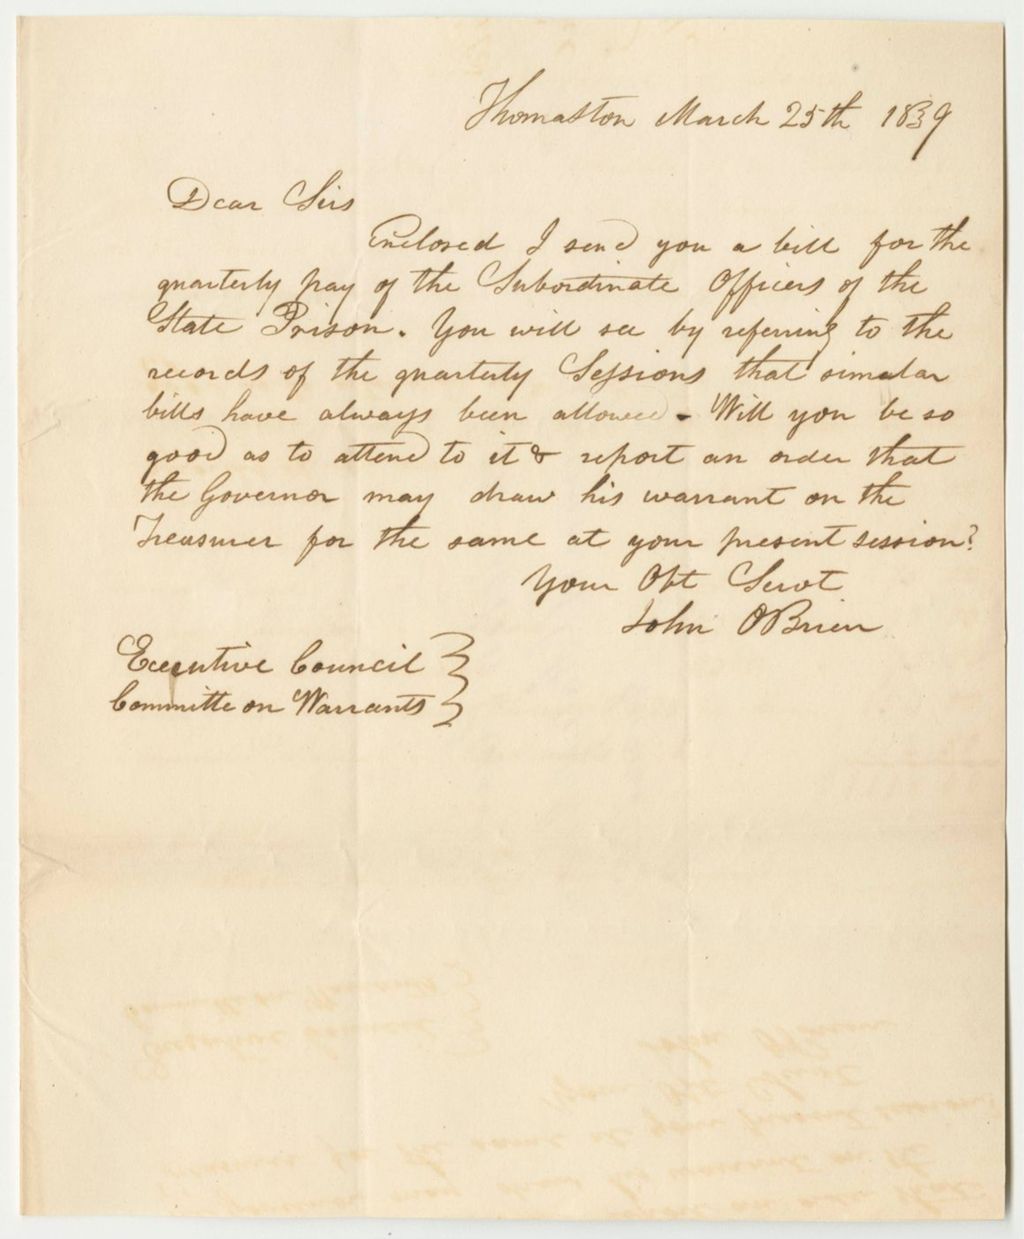 Thomaston March 25th 1839
Dear Sirs
Enclosed I send you a bill for the
quarterly pay of the Subordinate Officers of the
State Prison. You will see by referring to the
records of the quarterly Sessions that similar
bills have always been allowed - Will you be so
good as to attend to it & report an order that
the Governor may draw his warrant on the
Treasurer for the same at your present session?
Your Obt Servt
John OBrien
Executive Council
Committe on Warrants